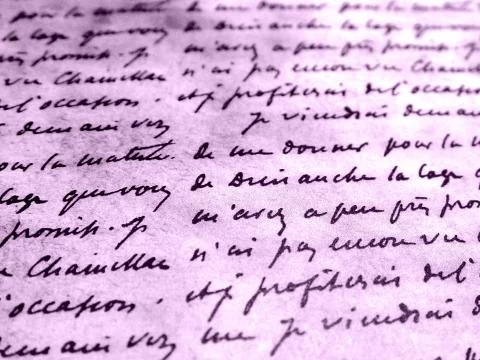 pour la matinée. de me donner pour la matinée
la loge que vous de Dimanche la loge que
promise. Je m'avez a peu près promise. Je
vu Chamillac n'ai pas encore vu Chamillac
de l'occasion. et je profiterais de l'occasion
demain voir Je viendrais demain
pour la matinée. de me donner pour la
loge que vous de Dimanche la loge
promise. Je m'avez a peu près
Chamillac n'ai pas encore vu
l'occasion. et je profiterais de
demain voir me Je viendrais